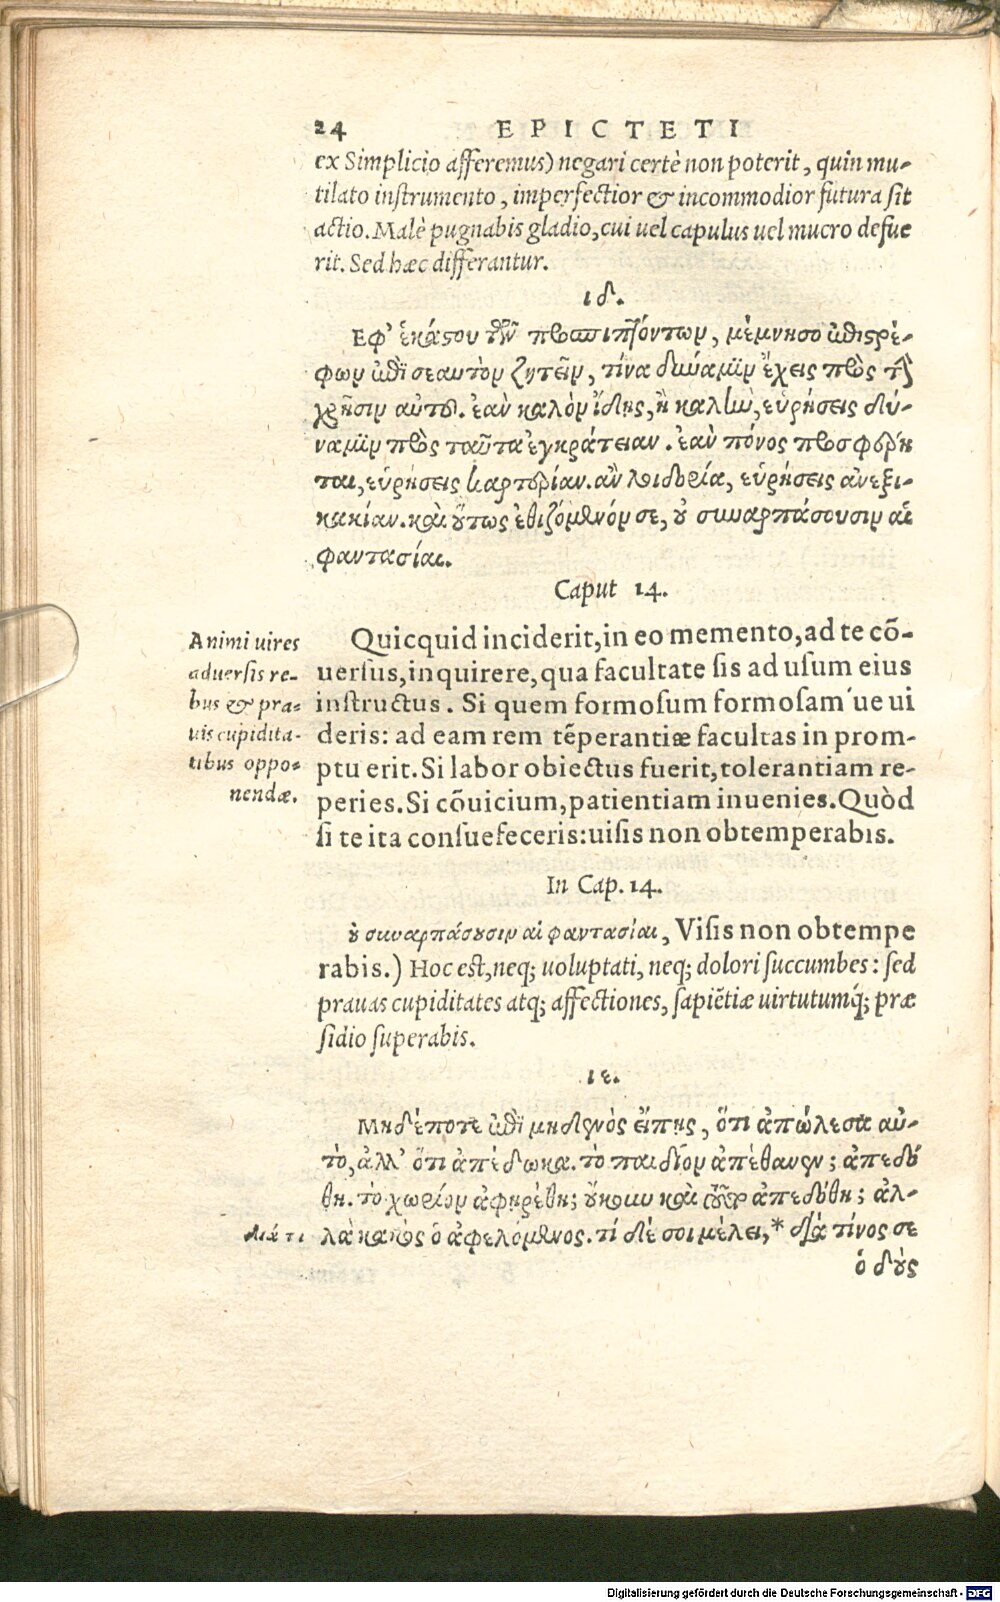 24 EPICTETI
ex Simplicio afferemus) negari certè non poterit, quin mu-
tilato instrumento, imperfectior & incommodior futura sit
actio. Malè pugnabis gladio, cui uel capulus uel mucro defue
rit. Sed hæc differantur.
ιδ.
Εφ' ἑκάστου τῶν προσπιπτόντων, μέμνησο ἐπιστρέ-
φων ἐπὶ σεαυτὸν ζητεῖν, τίνα δύναμιν ἔχεις πρὸς τὴν
χρῆσιν αὐτοῦ. ἐὰν καλὸν ἴδῃς, ἢ καλὴν, εὑρήσεις δύ-
ναμιν πρὸς ταῦτα ἐγκράτειαν. ἐὰν πόνος προσφέρη
ται, εὑρήσεις καρτερίαν. ἂν λοιδορία, εὑρήσεις ἀνεξι-
κακίαν. καὶ οὕτως ἐθιζόμενόν σε, οὐ συναρπάσουσιν αἱ
φαντασίαι.
Caput 14.
Animi uires
aduersis re-
bus & pra-
uis cupidita-
tibus oppo-
nendæ.
Quicquid inciderit, in eo memento, ad te cō-
uersus, inquirere, qua facultate sis ad usum eius
instructus. Si quem formosum formosam'ue ui
deris: ad eam rem tēperantiæ facultas in prom-
ptu erit. Si labor obiectus fuerit, tolerantiam re-
peries. Si cōuicium, patientiam inuenies. Quòd
si te ita consuefeceris: uisis non obtemperabis.
In Cap. 14.
οὐ συναρπάσουσιν αἱ φαντασίαι, Visis non obtempe
rabis.) Hoc est, neq; uoluptati, neq; dolori succumbes: sed
prauas cupiditates atq; affectiones, sapiētiæ uirtutumq́; præ
sidio superabis.
ιε.
Μηδέποτε ἐπὶ μηδενὸς εἴπῃς, ὅτι ἀπώλεσα αὐ-
τὸ, ἀλλ' ὅτι ἀπέδωκα. τὸ παιδίον ἀπέθανεν; ἀπεδό
θη. τὸ χωρίον ἀφῃρέθη; οὔκουν καὶ τοῦτο ἀπεδόθη; ἀλ-
λὰ κακὸς ὁ ἀφελόμενος. τί δέ σοι μέλει, * διὰ τίνος σε
διά τι
ὁ δοὺς